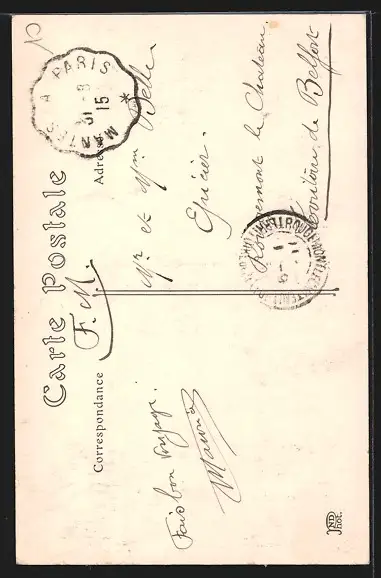 Carte Postale
F. M.
Correspondance
Adresse
MANTES A PARIS
31-8
15
Fais bon voyage.
Maurice
Mr et Mme Belle
Épicier.
Rougemont le Chateau
Territoire de Belfort
ND
Phot.